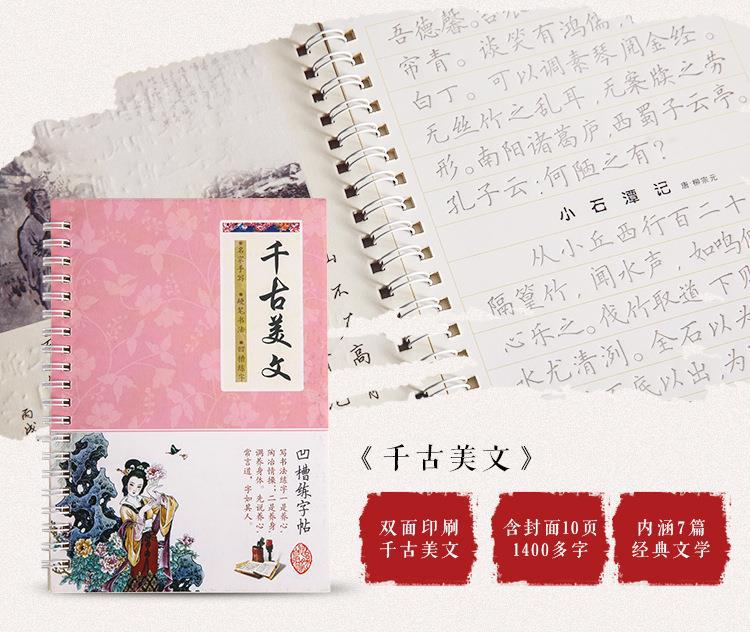 吾德馨。
帘青。谈笑有鸿儒，
白丁。可以调素琴，阅金经。
无丝竹之乱耳，无案牍之劳
形。南阳诸葛庐，西蜀子云亭。
孔子云：何陋之有？
小石潭记 唐·柳宗元
从小丘西行百二十
隔篁竹，闻水声，如鸣
心乐之。伐竹取道，下见
水尤清冽。全石以为
底以出，为
千古美文
●名家手写 ●硬笔书法 ●凹槽练字
凹槽练字帖
写书法练字一是养心，
陶冶情操；二是养身，
调养身体。先说养心，
常言道，字如其人。
《千古美文》
双面印刷
千古美文
含封面10页
1400多字
内涵7篇
经典文学